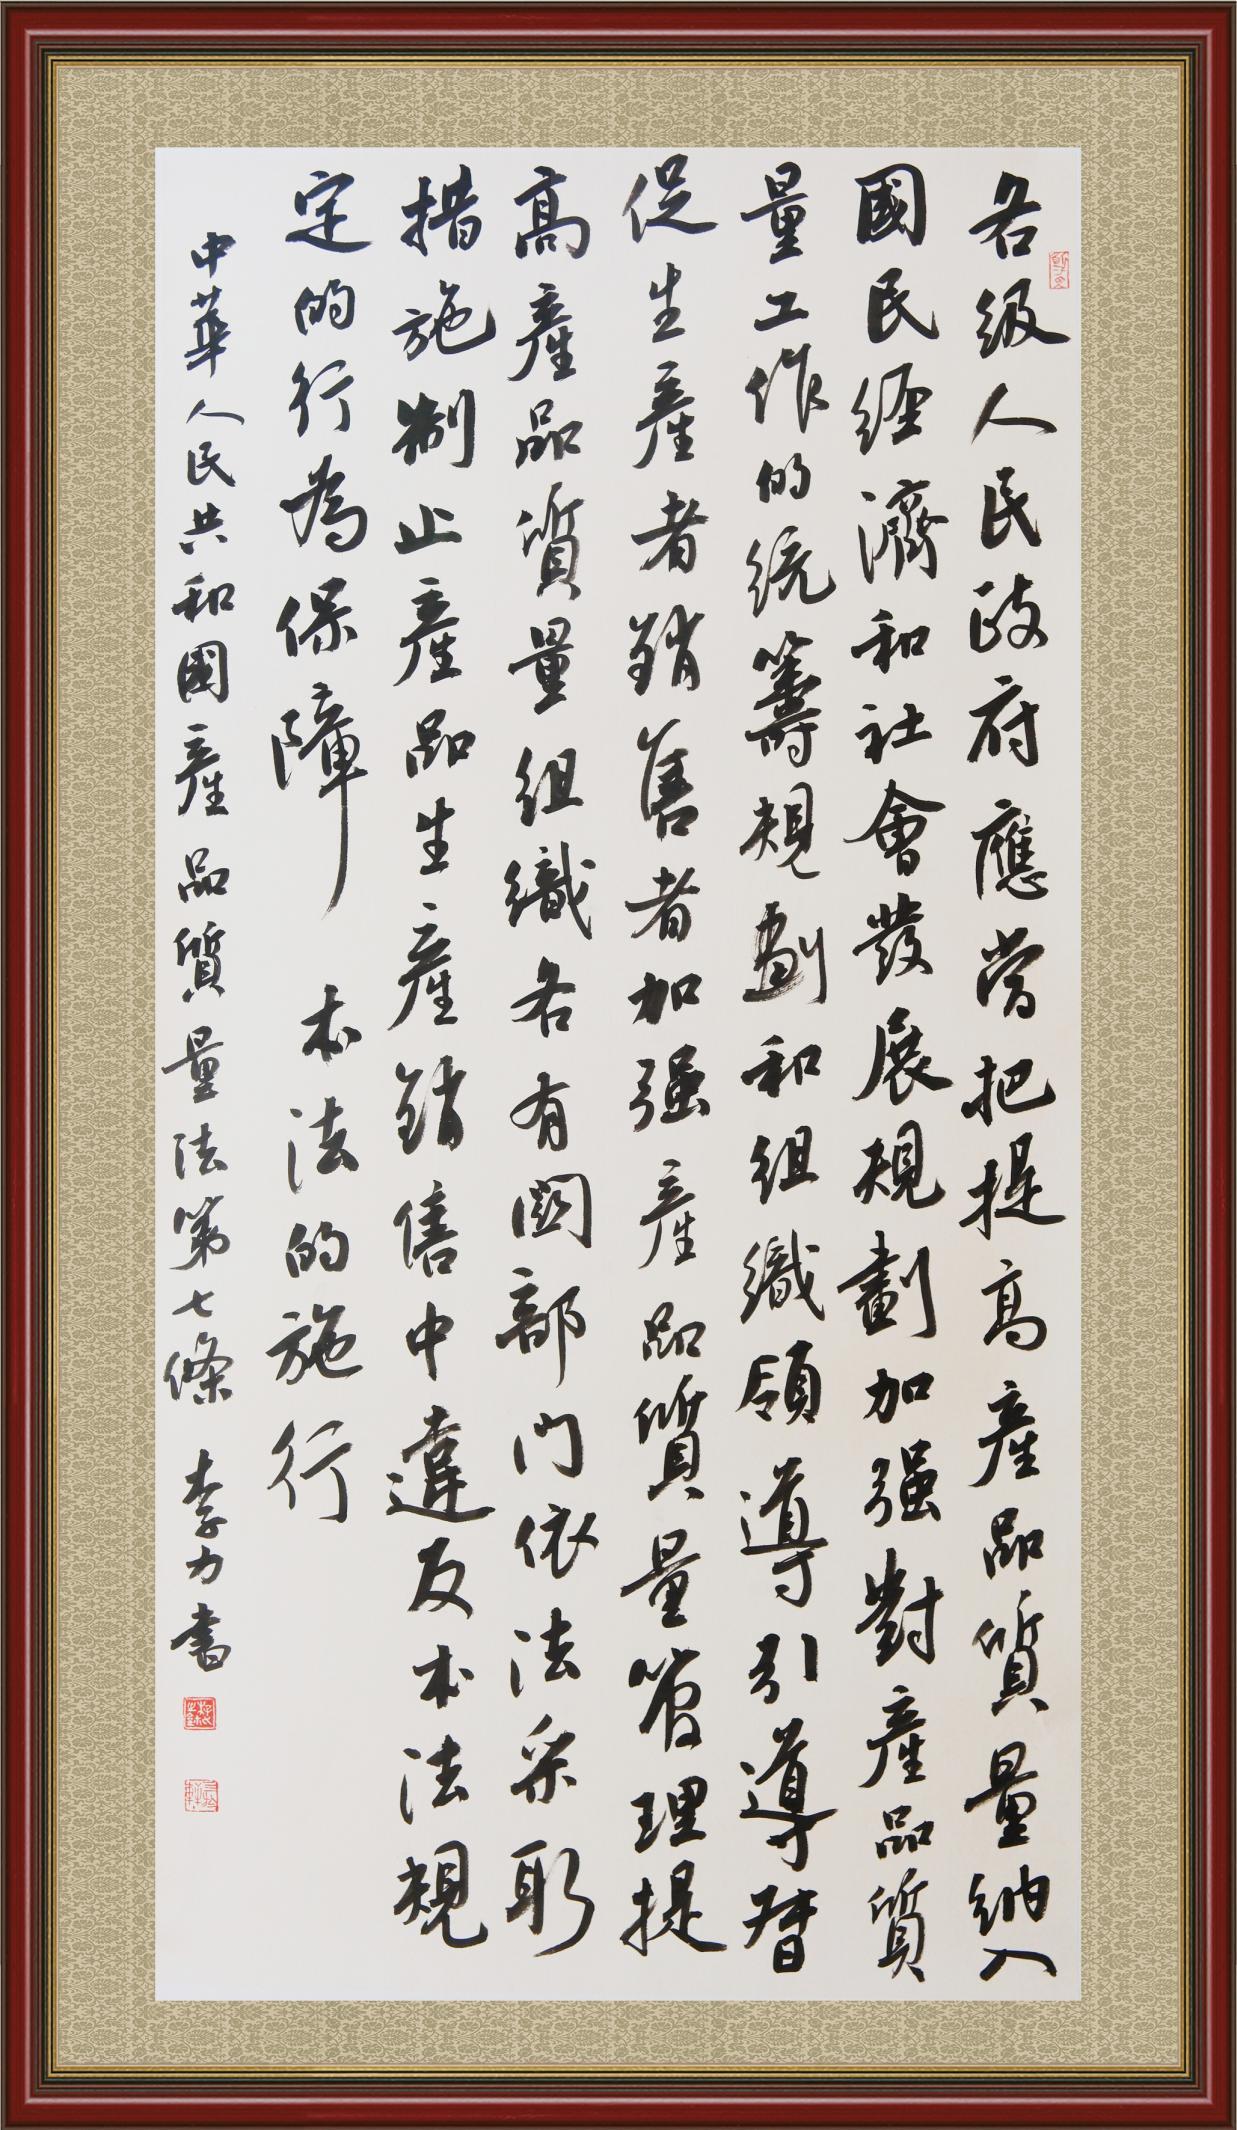 各级人民政府應當把提高產品質量納入
國民經濟和社會發展規劃加强對產品質
量工作的統籌規劃和組織領導引導督
促生產者銷售者加强產品質量管理提
高產品質量組織各有関部门依法采取
措施制止產品生產銷售中違反本法規
定的行為保障本法的施行
中華人民共和國產品質量法第七條 李力書